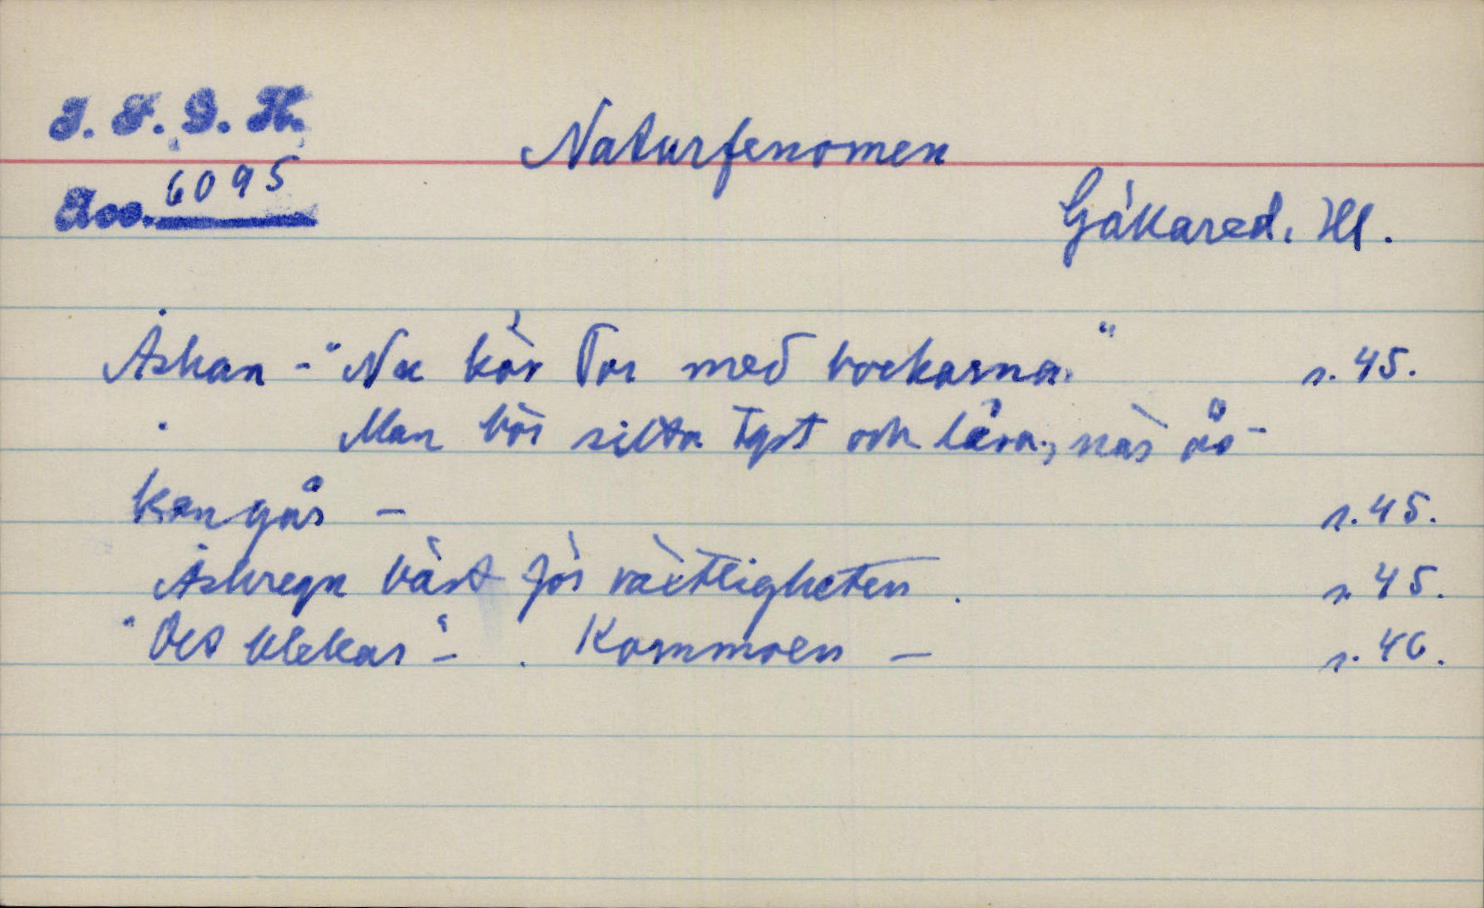 I. F. G. H.
Naturfenomen
Acc. 6095
Gällared. Hl.
Åskan - "Nu kör Tor med bockarna." s. 45.
Man bör sitta tyst och läsa, när ås-
kan går - s. 45.
Åskregn bäst för växtligheten. s. 45.
"Det blekas" - . Kornmoen - s. 46.